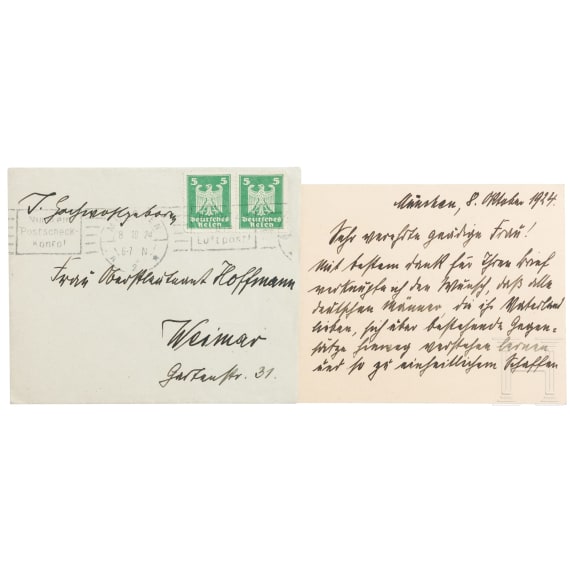 I. Hochwohlgeboren
5 5
Deutsches Reich
Deutsches Reich
Postscheck-
konto!
8 10 24
6-7 N.
Luftpost!
Frau Oberstleutnant Hoffmann
Weimar
Gartenstr. 31.
München, 8. Oktober 1924.
Sehr verehrte gnädige Frau!
Mit bestem Dank für Ihren Brief
verknüpfe ich den Wunsch, daß alle
deutschen Männer die ihr Vaterland
lieben, sich über bestehende Gegen-
sätze hinweg verstehen lernen
und so zu einheitlichem Schaffen